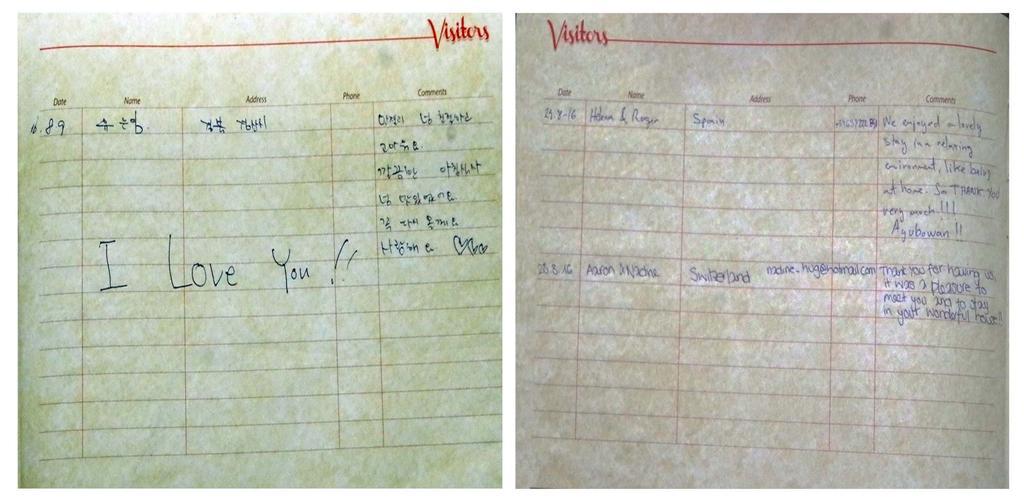 Visitors
Date Name Address Phone Comments
8 9 경북 경산시 너
고마워요
깔끔한 아침식사
넘 맛있었어요
꼭 다시 올게요
사랑해요
I Love You !!
Visitors
Date Name Address Phone Comments
29.8-16 & Roger Spain We enjoyed a lovely
stay in a relaxing
environment, like being
at home. So THANK YOU
very much!!!
Ayubowan!!
28.8.16 Aaron & Nadine Switzerland nadine.hug@hotmail.com Thank you for having us,
it was a pleasure to
meet you and to stay
in your wonderful house!!